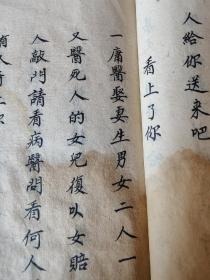 人給你送來吧
看上了你
一庸醫娶妻生男女二人一
又醫死人的女兒復以女賠
人敲門請看病醫問看何人